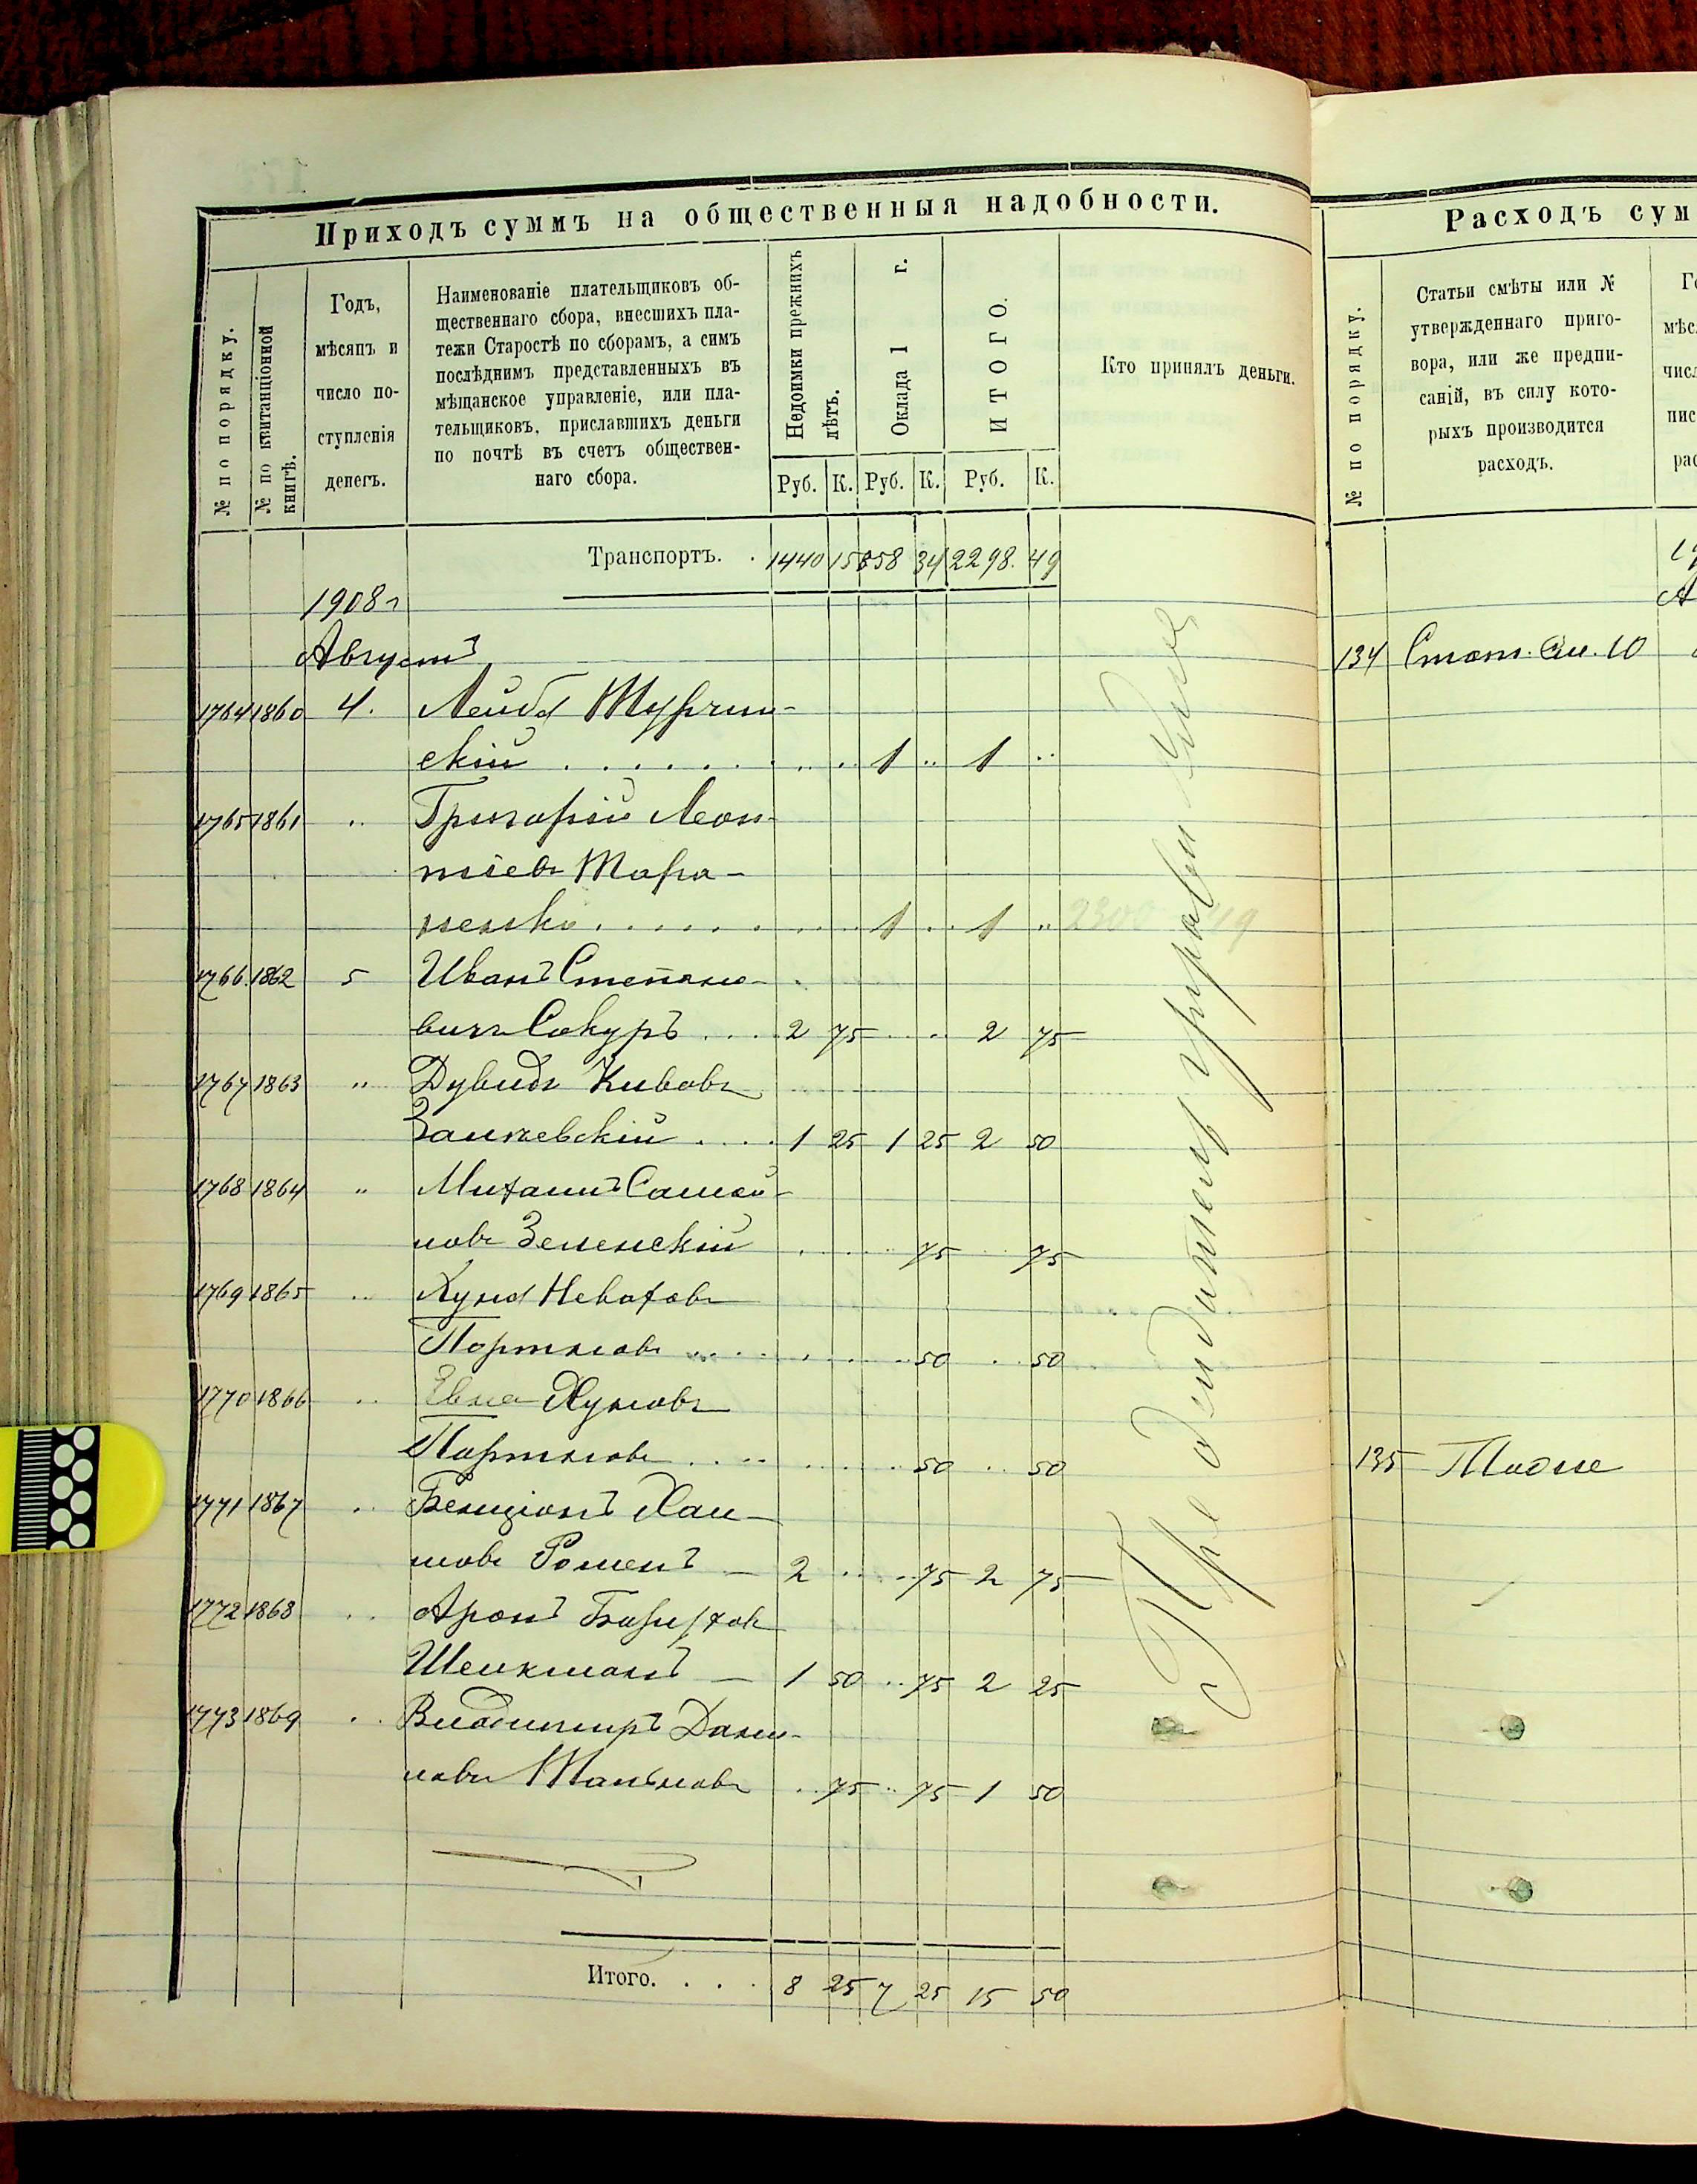 Приходъ суммъ на общественныя надобности.
№ по порядку.
№ по квитанціонной книгѣ.
Годъ,
мѣсяцъ и
число по-
ступленія
денегъ.
Наименованіе плательщиковъ об-
щественнаго сбора, внесшихъ пла-
тежи Старостѣ по сборамъ, а симъ
послѣднимъ представленныхъ въ
мѣщанское управленіе, или пла-
тельщиковъ, приславшихъ деньги
по почтѣ въ счетъ обществен-
наго сбора.
Недоимки прежнихъ
лѣтъ.
Оклада 1 г.
ИТОГО.
Кто принялъ деньги.
Руб. К. Руб. К. Руб. К.
Транспортъ. . 1440 15 858 34 2298. 49
1908 г
Августъ
1764 1860 4. Лейба
скій . . . . . . . . . 1 .. 1 ..
1765 1861 .. Григорій Леон-
тіевъ Тара-
ненко . . . . . . . . . 1 .. 1 .. 2300 49
1766 1862 5 Иванъ Степано-
вичъ Сокуръ .... 2 75 .... 2 75
1767 1863 " Дувидъ Кивовъ
.... 1 25 1 25 2 50
1768 1864 " Михаилъ Самой-
ловъ Зеленскій ..... 75 .. 75
1769 1865 .. Хуна
Портновъ ........ 50 .. 50
1770 1866 .. Хуновъ
Портновъ ........ 50 .. 50
1771 1867 .. Бенціонъ Хаи-
мовъ Роменъ — 2 .... 75 2 75
1772 1868 .. Аронъ
— 1 50 .. 75 2 25
1773 1869 .. Владимиръ Дани-
ловъ .. 75 .. 75 1 50
Итого. . . . 8 25 7 25 15 50
Расходъ сум
№ по порядку.
Статьи смѣты или №
утвержденнаго приго-
вора, или же предпи-
саній, въ силу кото-
рыхъ производится
расходъ.
Го
мѣс
числ
пис
рас
134 Стат. См. 10
135 Тоже